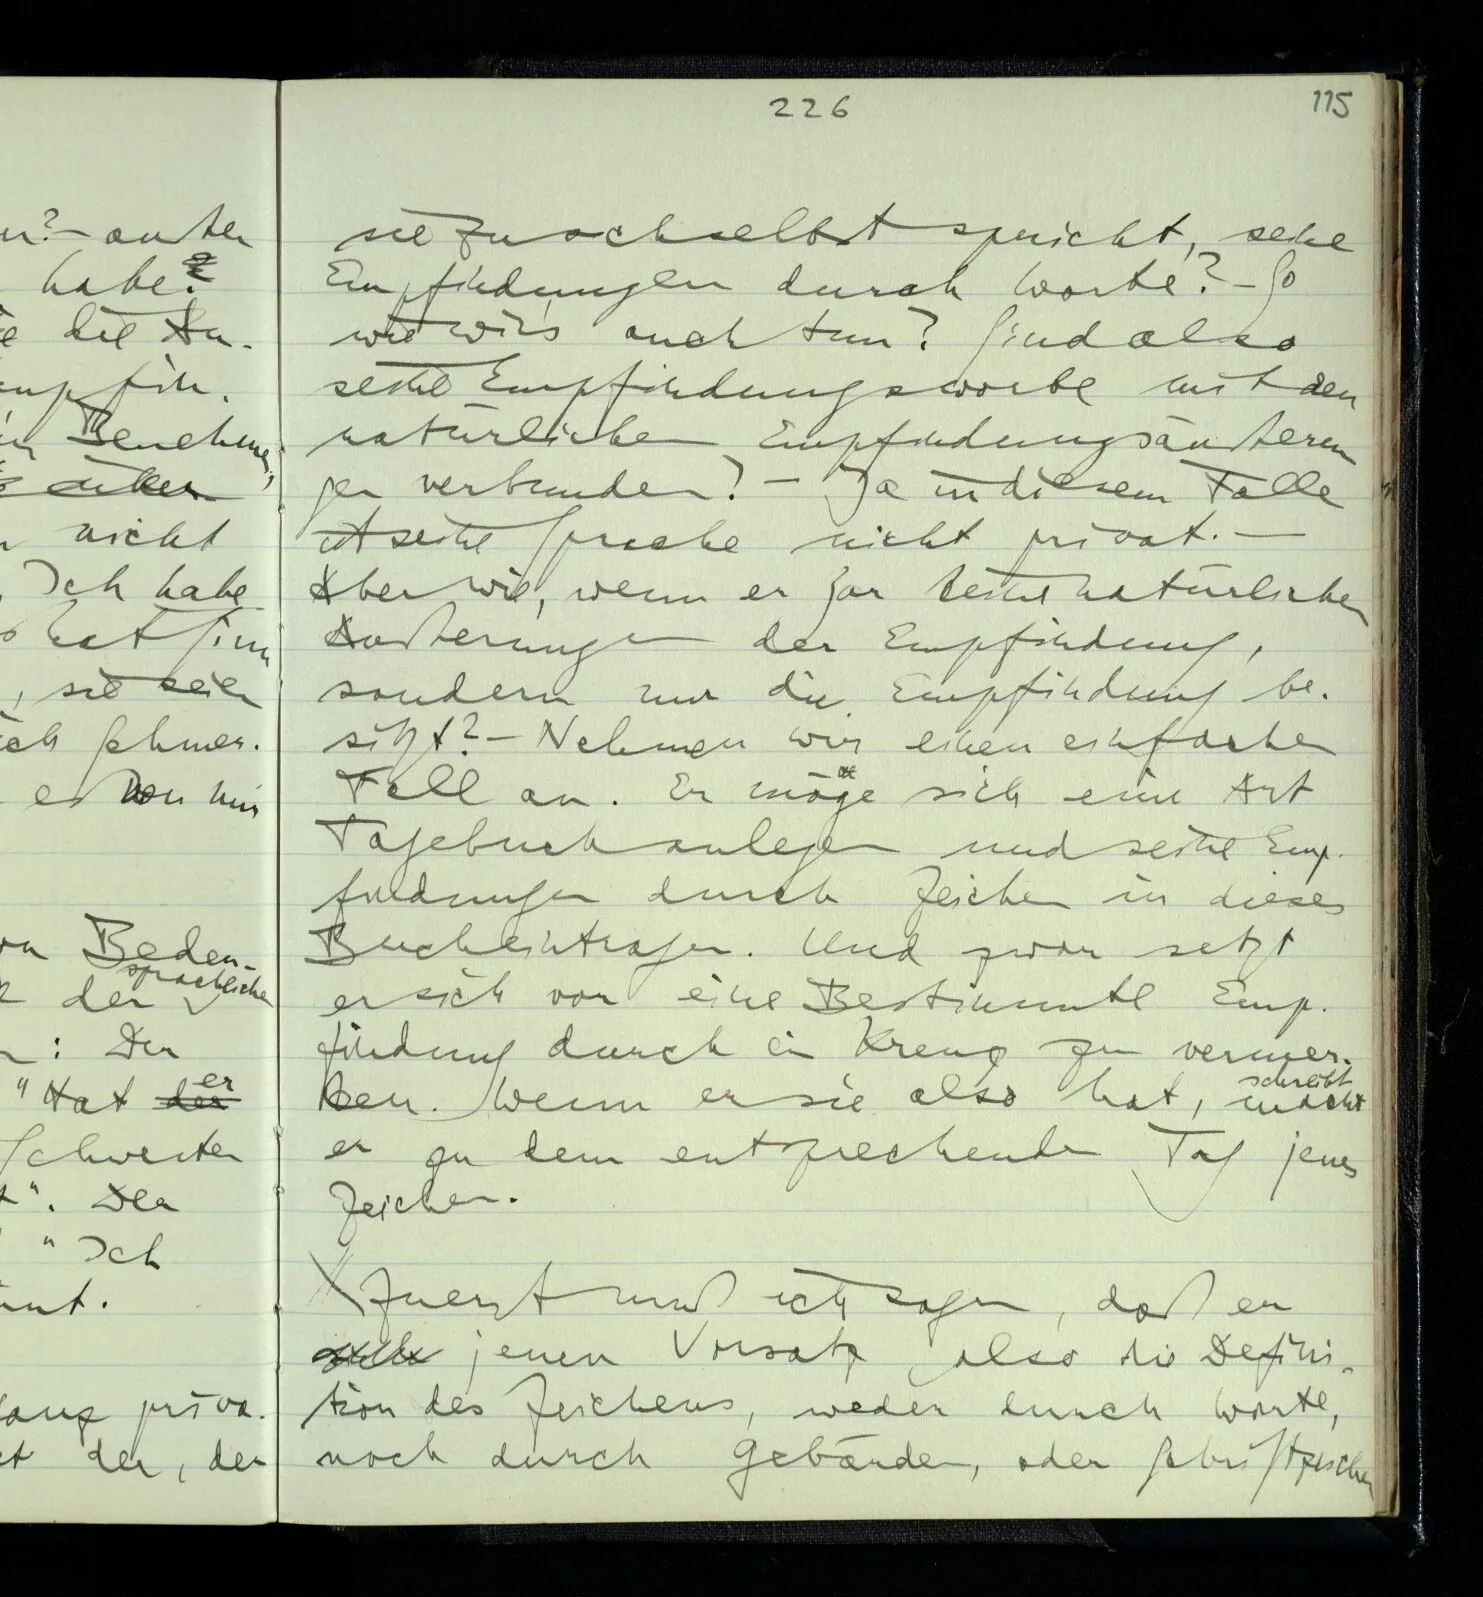 226
115
n?– außer
habe?
die Au-
empfin-
Benehmen,
nicht
Ich habe
hat Sinn
, sie seien
ich Schmer-
es von mir
von Beden-
sprachlichen
der
: Der
er
"Hat der
Schwester
". Der
" Ich
ganz priva-
der, der
sie zu sich selbst spricht, seine
Empfindungen durch Worte? – So
wie wir's auch tun? Sind also
seine Empfindungsworte mit den
natürlichen Empfindungsäußerun-
gen verbunden? – Ja in diesem Falle
ist seine Sprache nicht privat. —
Aber wie, wenn er gar keine natürlichen
Äußerungen der Empfindung,
sondern nur die Empfindung be-
sitzt? – Nehmen wir einen einfachen
Fall an. Er möge sich eine Art
Tagebuch anlegen und seine Emp-
findungen durch Zeichen in dieses
Buch eintragen. Und zwar setzt
er sich vor eine Bestimmte Emp-
findung durch ein Kreuz zu vermer-
ken. Wenn er sie also hat, macht
schreibt
er zu dem entsprechenden Tag jenes
Zeichen.
Zuerst muß ich sagen, daß er
jenen Vorsatz, also die Defini-
tion des Zeichens, weder durch Worte,
noch durch Gebärden, oder Schriftzeichen